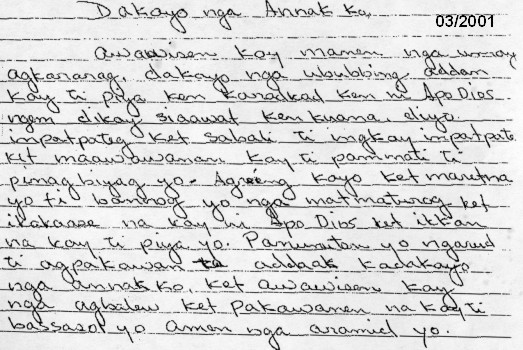 03/2001
Dakayo nga Annak ko,
awawisen kay manen nga umay
agkararag, dakayo nga ububbing addan
kay ti piya ken karadkad ken ni Apo Dios
ngem dikay siaawat ken kuana, diyo
impatpateg ket sabali ti ingkay impatpateg
ket maawawanan kay ti pammati ti
pinagbiyag yo. Agriing kayo ket marikna
yo ti bannog yo nga matmaturog ket
ikakaasi na kay ni Apo Dios ket ikkan
na kay ti piya yo. Panunuten yo ngarud
ti agpakawan addaak kadakayo
nga annak ko, ket awawisen kay
nga agbabawi ket pakawanen na kay ti
bassasol yo amen nga aramid yo.